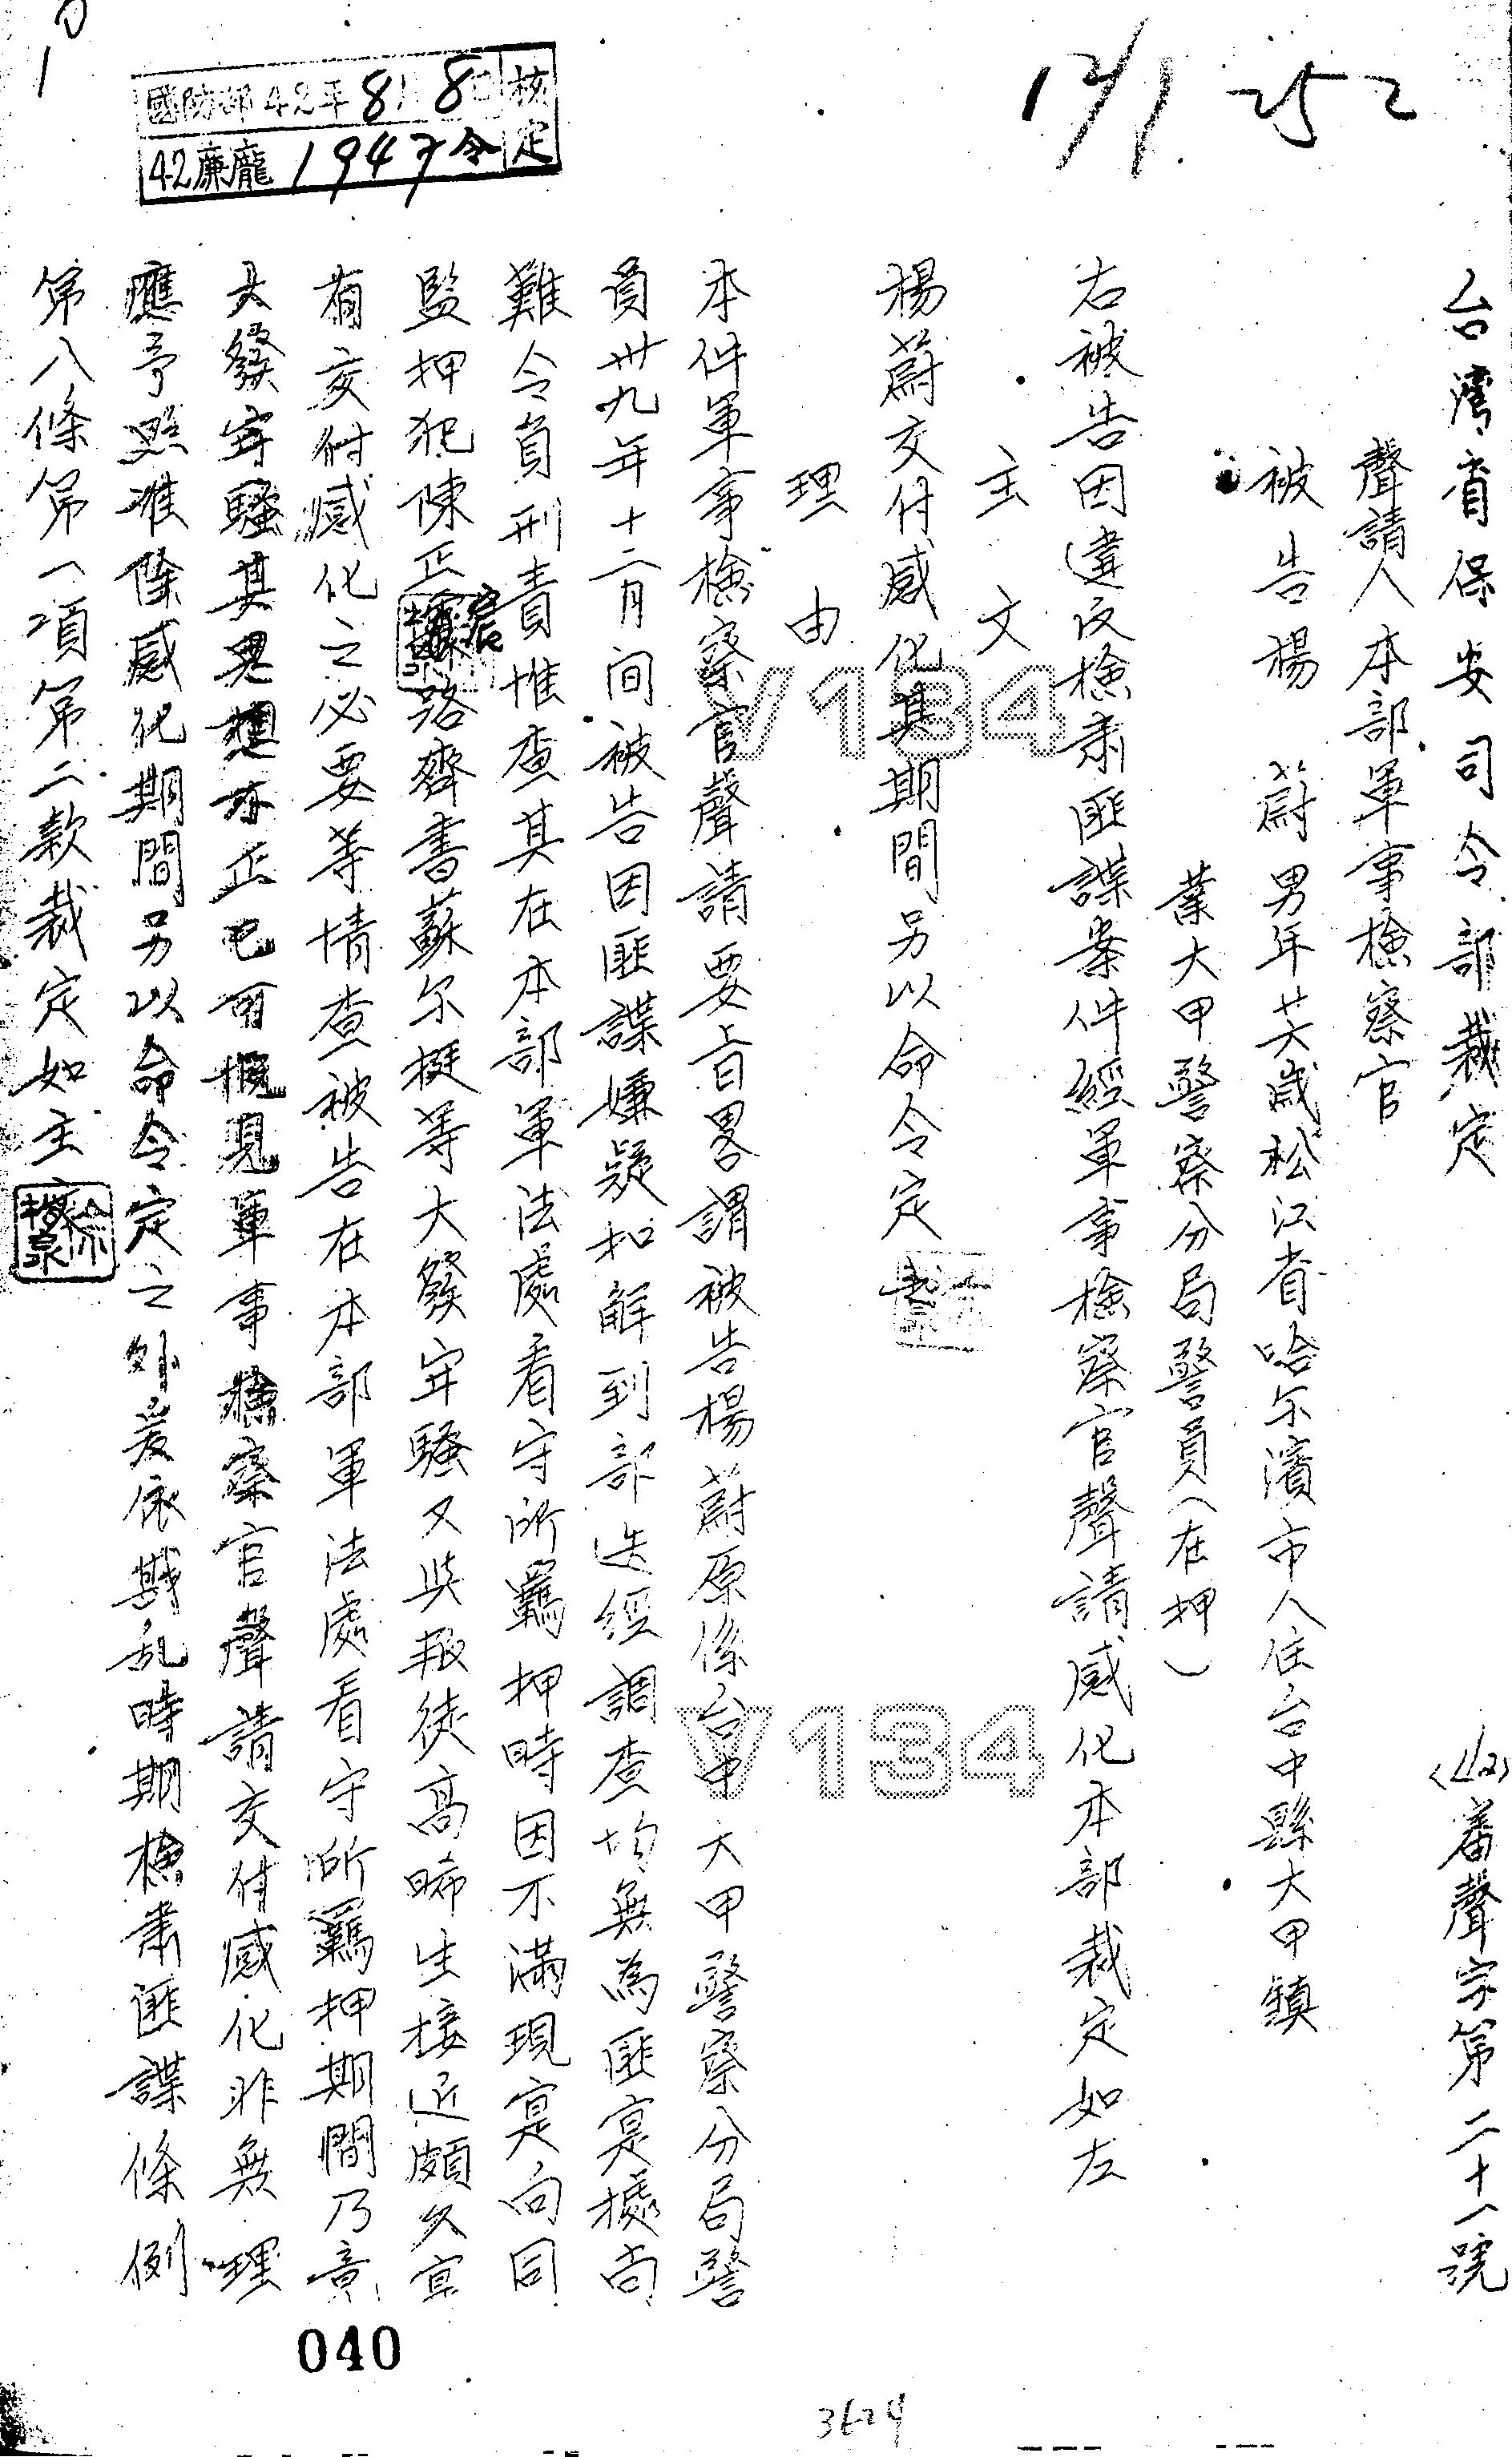 台灣省保安司令部裁定
(42)審聲字第二十一號
聲請人本部軍事檢察官
被告楊 蔚男年廿六歲松江省哈尔濱市人住台中縣大甲鎮
業大甲警察分局警員(在押)
右被告因違反檢肅匪諜案件經軍事檢察官聲請感化本部裁定如左
主文
楊蔚交付感化其期間另以命令定之
理由
本件軍事檢察官聲請要旨畧謂被告楊蔚原係台中大甲警察分局警
員卅九年十二月間被告因匪諜嫌疑扣解到部迭經調查均無為匪寔據尚
難令負刑責惟查其在本部軍法處看守所羈押時因不滿現寔向同
監押犯陳正宸路齊書蘇尔挺等大發牢騷又與叛徒高晞生接近頗久寔
有交付感化之必要等情查被告在本部軍法處看守所羈押期間乃竟
大發牢騷其思想亦正已可概見軍事檢察官聲請交付感化非無理
應予照准除感化期間另以命令定之外爰依戡乱時期檢肅匪諜條例
第八條第一項第二款裁定如主文
國防部42年8月8日核定
42廉龐1947令
12/1 252
V134
V134
040
3624